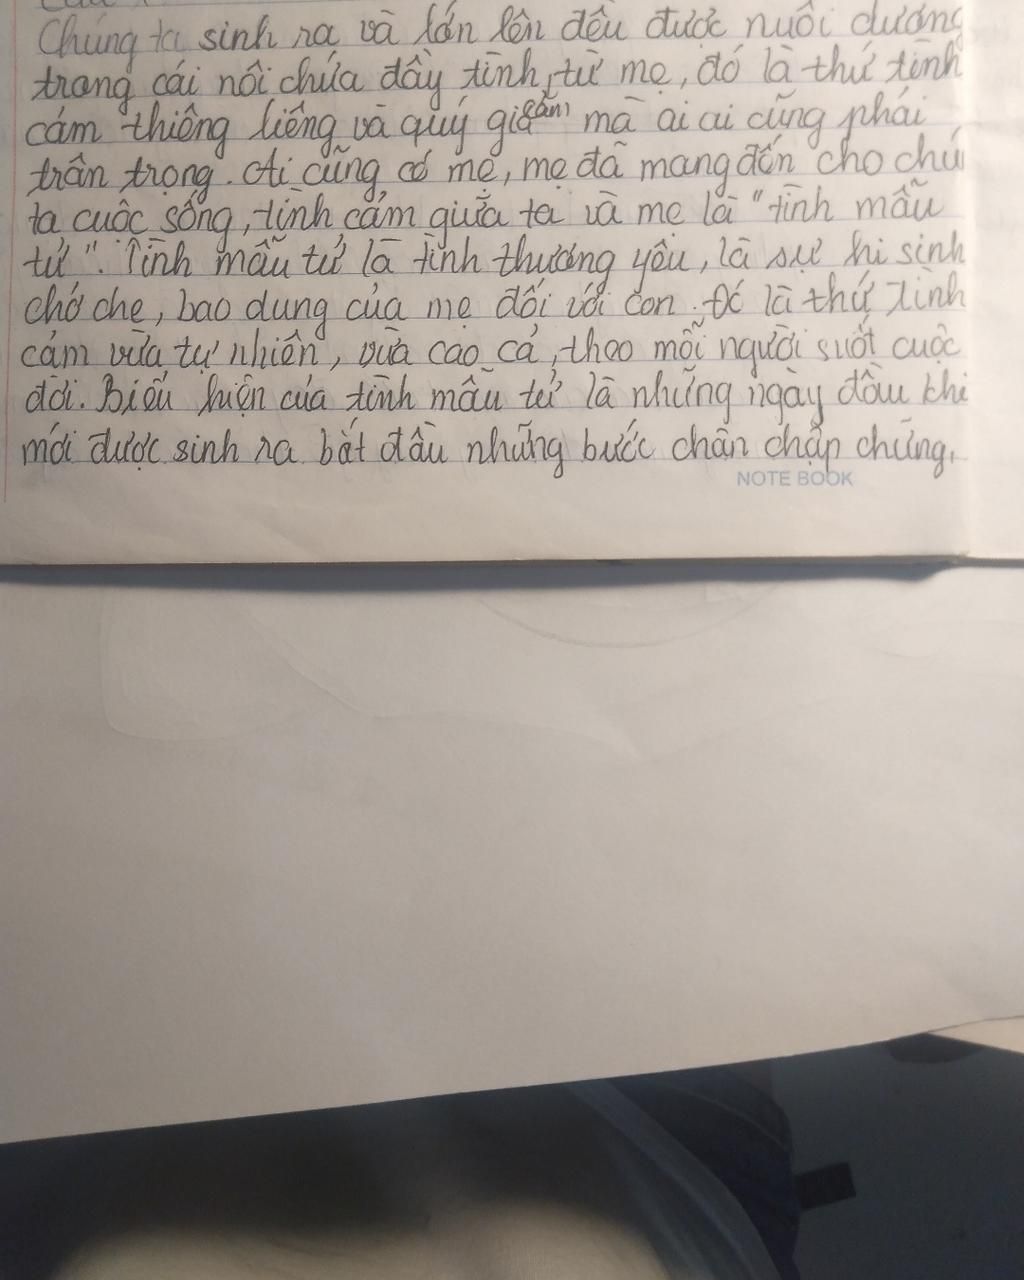 Chúng ta sinh ra và lớn lên đều được nuôi dưỡng
trong cái nôi chứa đầy tình từ mẹ, đó là thứ tình
cảm thiêng liêng và quý giá mà ai ai cũng phải
trân trọng. Ai cũng có mẹ, mẹ đã mang đến cho chú
ta cuộc sống, tình cảm giữa ta và mẹ là "tình mẫu
tử". Tình mẫu tử là tình thương yêu, là sự hi sinh
chở che, bao dung của mẹ đối với con. Đó là thứ tình
cảm vừa tự nhiên, vừa cao cả, theo mỗi người suốt cuộc
đời. Biểu hiện của tình mẫu tử là những ngày đầu khi
mới được sinh ra bắt đầu những bước chân chập chững,
NOTE BOOK